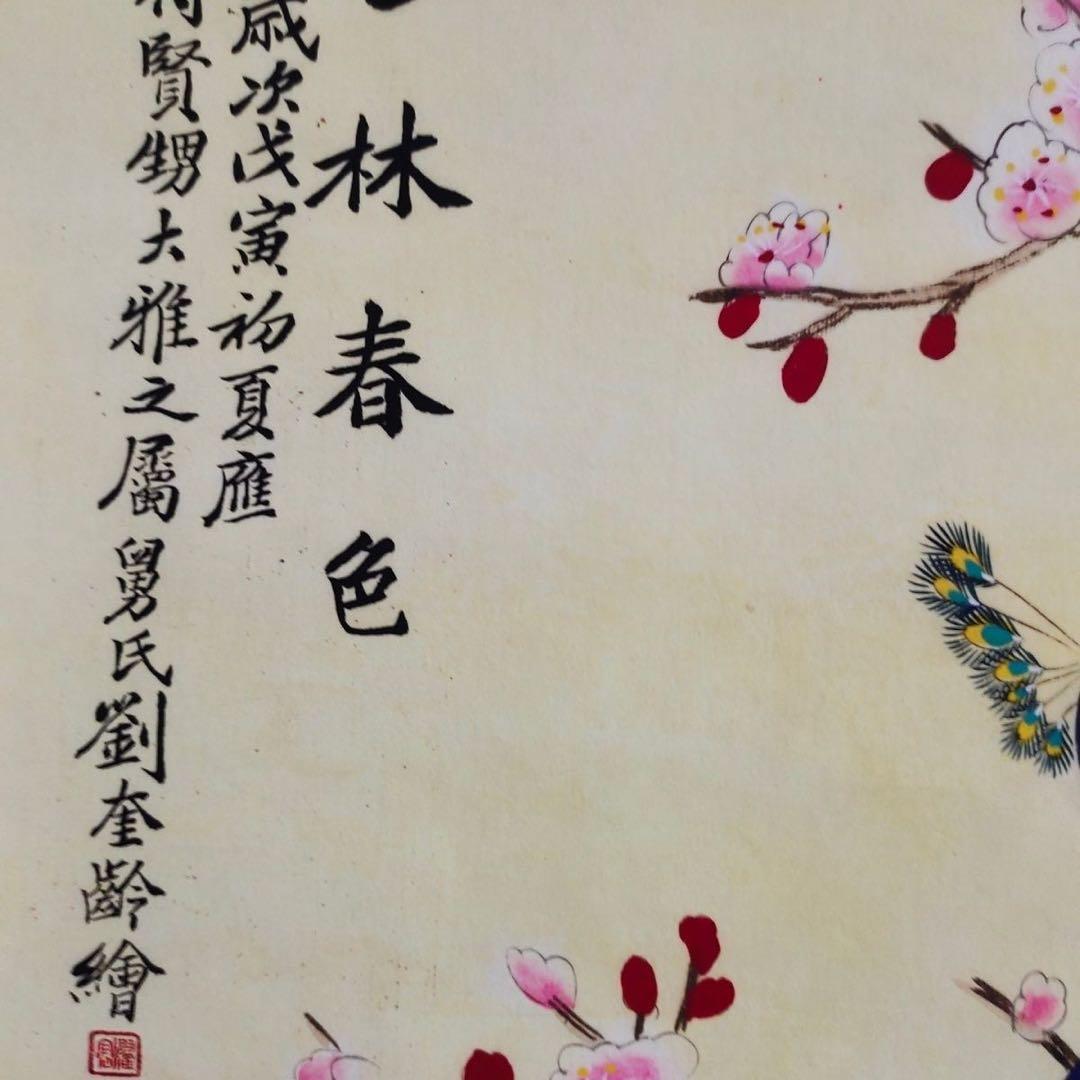 林春色
歲次戊寅初夏應
賢甥大雅之屬舅氏劉奎齡繪